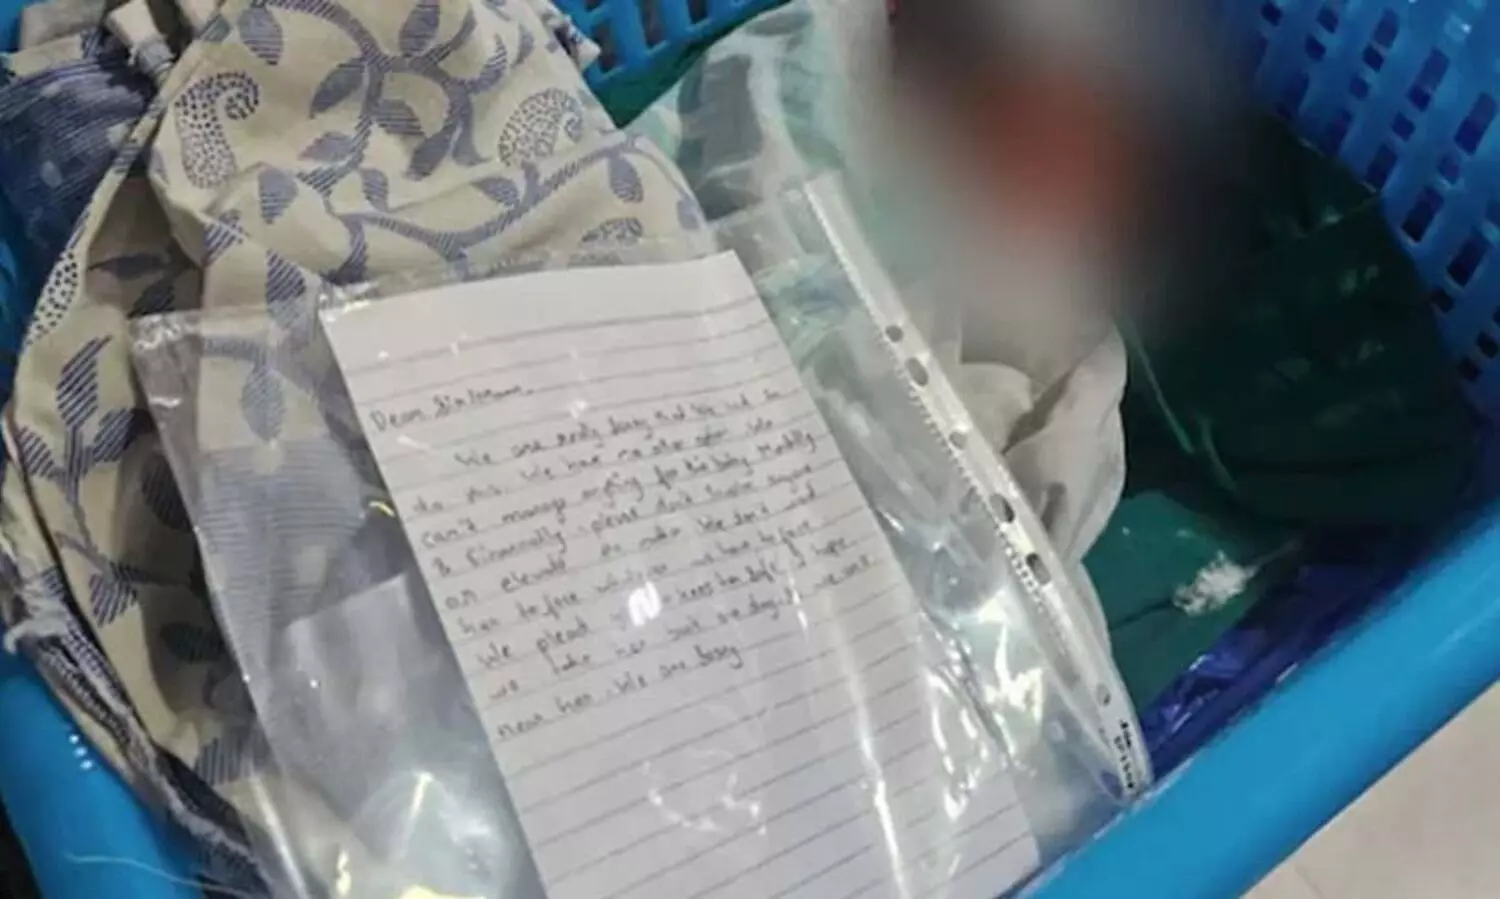 Dear Sir/Mam,
We are really sorry that We had to
do this. We have no other option. We
can't manage anything for this baby Mentally
& Financially. please don't involve anyone
or elevate the matter. We don't want
her to face whatever we have to face.
We plead to keep her safe. I hope
we take her but one day
near her. We are sorry